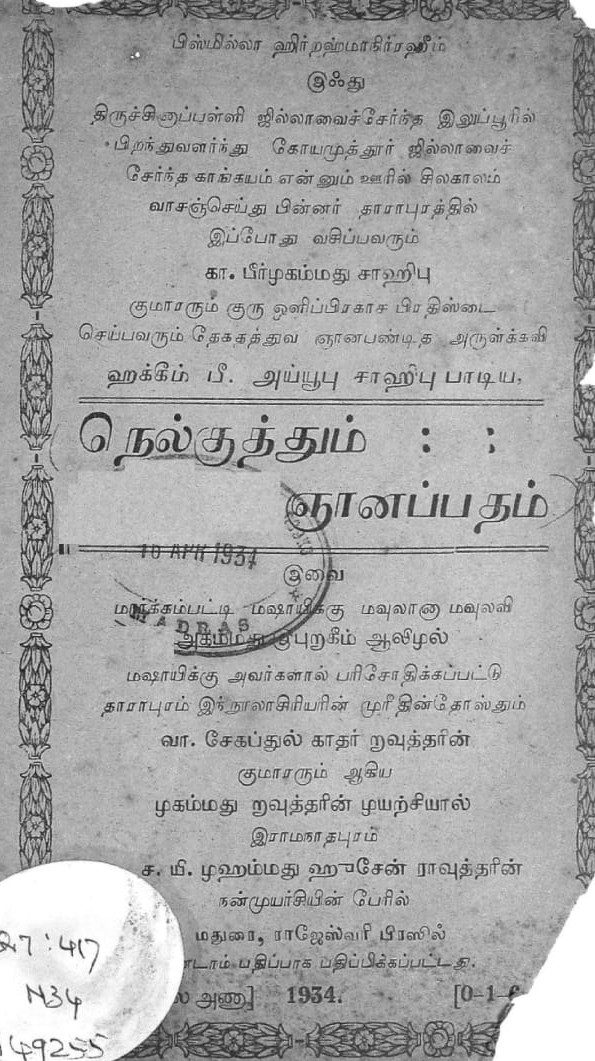 பிஸ்மில்லா ஹிர்றஹ்மானிர்ரஹீம்
இஃது
திருச்சினாப்பள்ளி ஜில்லாவைச்சேர்ந்த இலுப்பூரில்
பிறந்துவளர்ந்து கோயமுத்தூர் ஜில்லாவைச்
சேர்ந்த காங்கயம் என்னும் ஊரில் சிலகாலம்
வாசஞ்செய்து பின்னர் தாராபுரத்தில்
இப்போது வசிப்பவரும்
கா. பீர்முகம்மது சாஹிபு
குமாரரும் குரு ஒளிப்பிரகாச பிரதிஸ்டை
செய்பவரும் தேகதத்துவ ஞானபண்டித அருள்க்கவி
ஹக்கீம் பீ. அய்யூபு சாஹிபு பாடிய,
நெல்குத்தும் : :
ஞானப்பதம்
10 APR 1934
இவை
மார்க்கம்பட்டி மஷாயிக்கு மவுலானா மவுலவி
MADRAS
ஆலிழல்
மஷாயிக்கு அவர்களால் பரிசோதிக்கப்பட்டு
தாராபுரம் இந்நூலாசிரியரின் முரீதின்தோஸ்தும்
வா. சேகப்துல் காதர் றவுத்தரின்
குமாரரும் ஆகிய
முகம்மது றவுத்தரின் முயற்சியால்
இராமநாதபுரம்
ச. யி. முஹம்மது ஹுசேன் ராவுத்தரின்
நன்முயர்சியின் பேரில்
மதுரை, ராஜேஸ்வரி பிரஸில்
பதிப்பாக பதிப்பிக்கப்பட்டது.
அணா] 1934. [0-1-
27:417
N34
149255